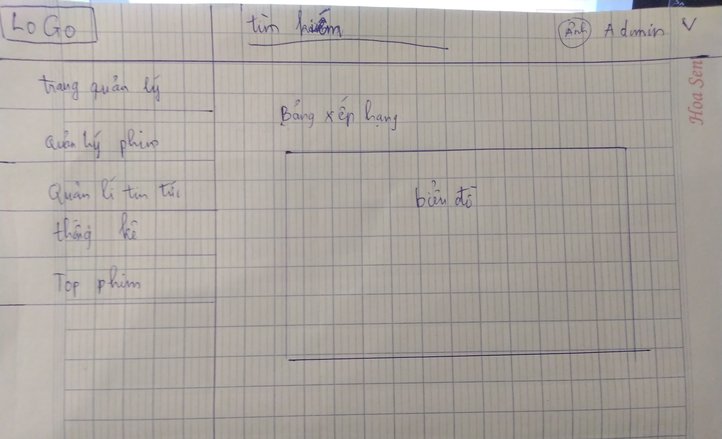 LoGo
tìm kiếm
Ảnh Admin
trang quản lý
Quản lý phim
Quản lí tin tức
thống kê
Top phim
Bảng xếp hạng
biểu đồ
Hoa Sen